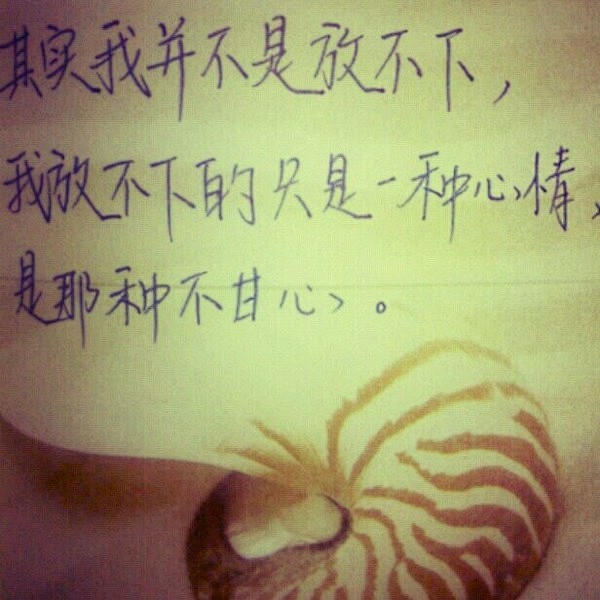 其实我并不是放不下，
我放不下的只是一种心情，
是那种不甘心。